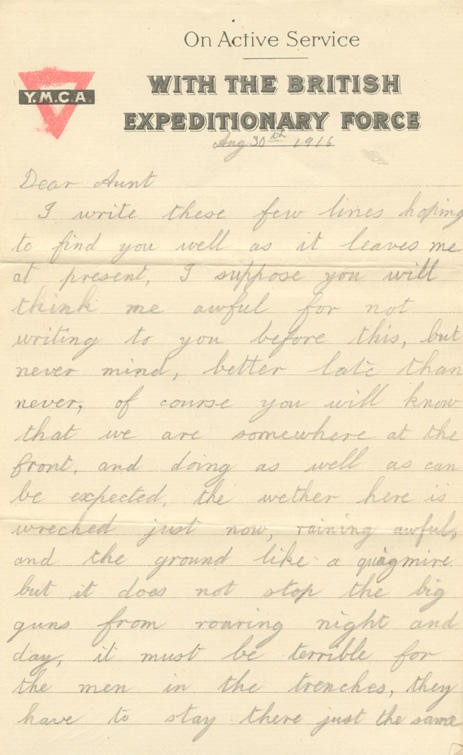 On Active Service
Y.M.C.A.
WITH THE BRITISH
EXPEDITIONARY FORCE
Aug 30th 1916
Dear Aunt
I write these few lines hoping
to find you well as it leaves me
at present, I suppose you will
think me awful for not
writing to you before this, but
never mind, better late than
never, of course you will know
that we are somewhere at the
front, and doing as well as can
be expected, the wether here is
wreched just now, raining awful,
and the ground like a quagmire
but it does not stop the big
guns from roaring night and
day, it must be terrible for
the men in the trenches, they
have to stay there just the same